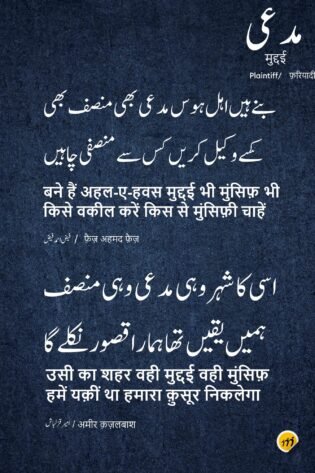 مدعی
मुद्दई
Plaintiff/ फ़रियादी
بنے ہیں اہل ہوس مدعی بھی منصف بھی
کسے وکیل کریں کس سے منصفی چاہیں
बने हैं अहल-ए-हवस मुद्दई भी मुंसिफ़ भी
किसे वकील करें किस से मुंसिफ़ी चाहें
فیض احمد فیض / फ़ैज़ अहमद फ़ैज़
اسی کا شہر وہی مدعی وہی منصف
ہمیں یقیں تھا ہمارا قصور نکلے گا
उसी का शहर वही मुद्दई वही मुंसिफ़
हमें यक़ीं था हमारा क़ुसूर निकलेगा
امیر قزلباش / अमीर क़ज़लबाश